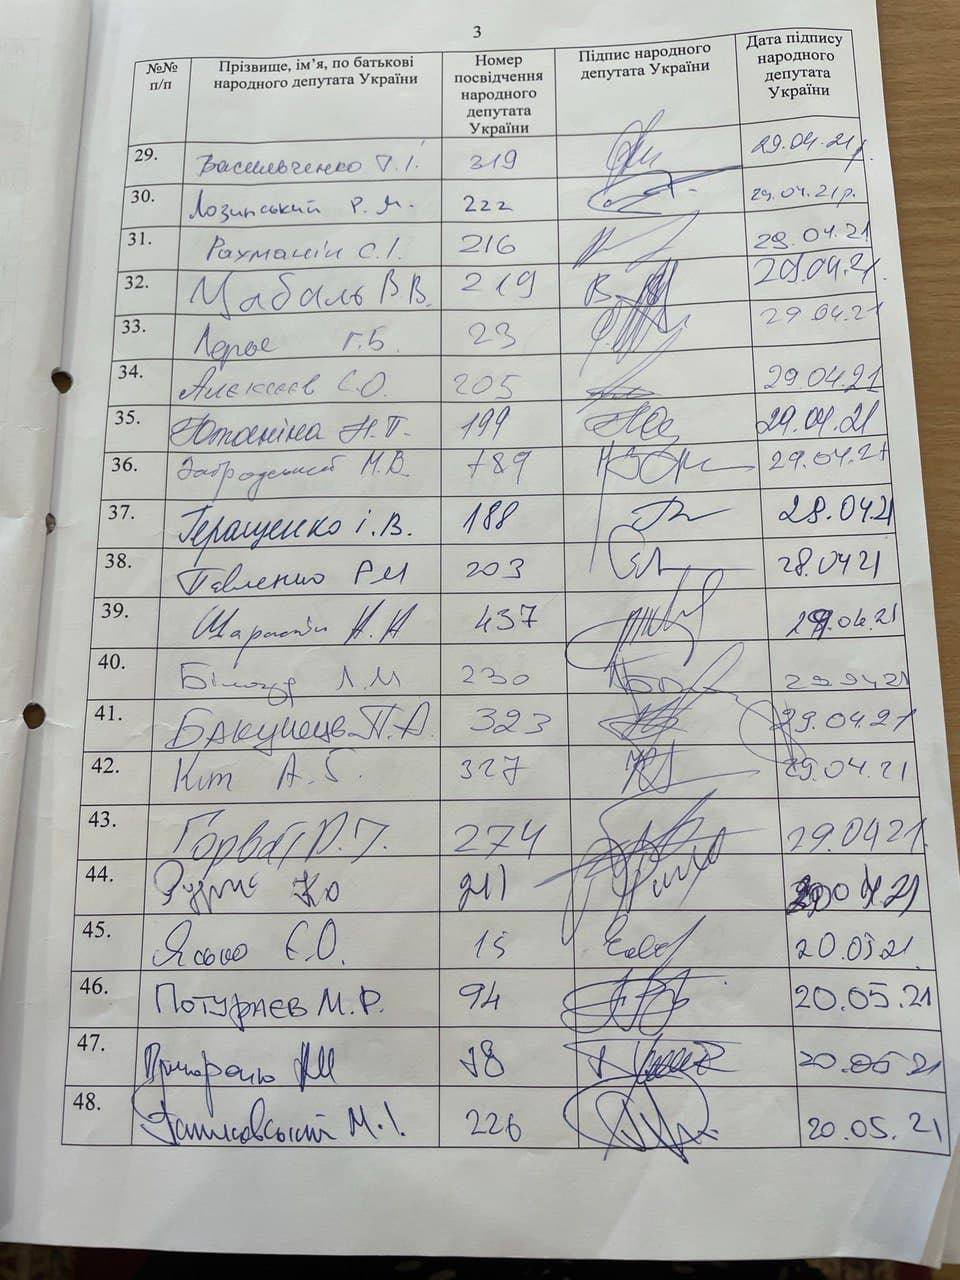 3
№№ п/п Прізвище, ім'я, по батькові народного депутата України Номер посвідчення народного депутата України Підпис народного депутата України Дата підпису народного депутата України
29. Васильченко Г.І. 319 29.04.21р.
30. Лозинський Р.М. 222 29.04.21р.
31. Рахманін С.І. 216 29.04.21
32. Цабаль В.В. 219 29.04.21
33. Г.Б. 23 29.04.21
34. Алєксєєв С.О. 205 29.04.21
35. Южаніна Н.П. 199 29.04.21
36. Забродський М.В. 189 29.04.21
37. Геращенко І.В. 188 28.04.21
38. Павленко Р.М 203 28.04.21
39. 437 29.04.21
40. Білозір Л.М 230 29.04.21
41. Бакунець П.А. 323 29.04.21
42. Кіт А.Б. 327 29.04.21
43. Горват Р.І. 274 29.04.21.
44. 04.21
45. Ясько Є.О. 15 20.05.21.
46. Потураєв М.Р. 94 20.05.21
47. 20.05.21
48. М.І. 226 20.05.21